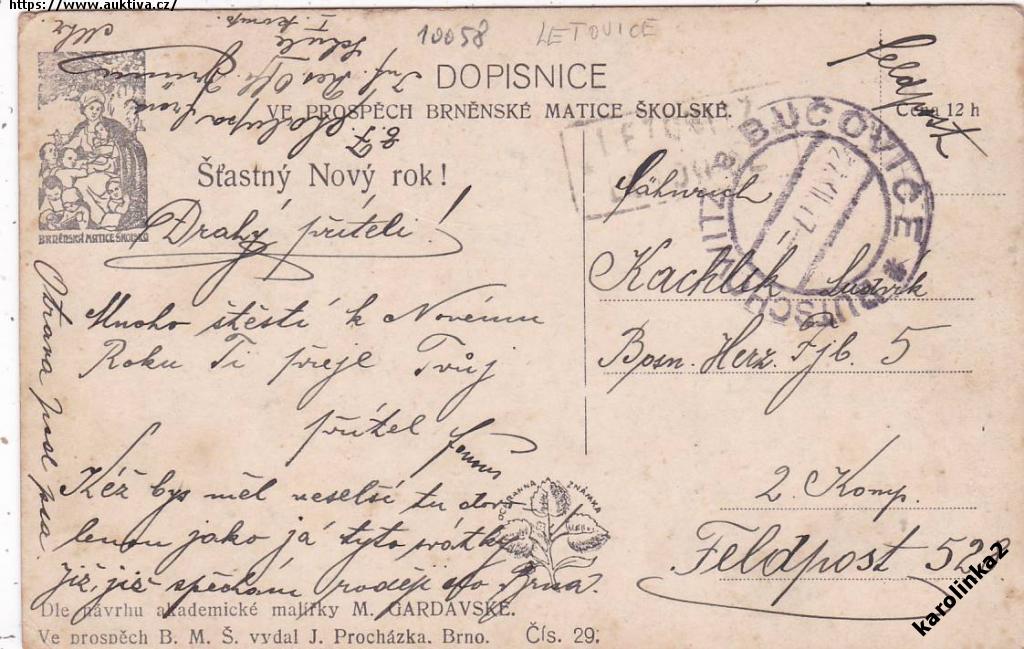 https://www.auktiva.cz/
10058 LETOVICE
DOPISNICE
VE PROSPĚCH BRNĚNSKÉ MATICE ŠKOLSKÉ.
Cena 12 h
Feldpost
BRNĚNSKÁ MATICE ŠKOLSKÁ
Šťastný Nový rok!
Drahý příteli!
Mnoho štěstí k Novému
Roku Ti přeje Tvůj
přítel
Kéž bys měl veselší tu dovo-
lenou jako já tyto svátky
Již, již spěchám raději do Brna.
Otrava pod psa.
BUČOVICE * BUTSCHOWITZ
Fähnrich
Kachlík Ludvík
Bosn. Herz. Fjb. 5
2. Komp.
Feldpost 522
OCHRANNÁ ZNÁMKA
Dle návrhu akademické malířky M. GARDAVSKÉ.
Ve prospěch B. M. Š. vydal J. Procházka, Brno. Čís. 29.
karolinka2